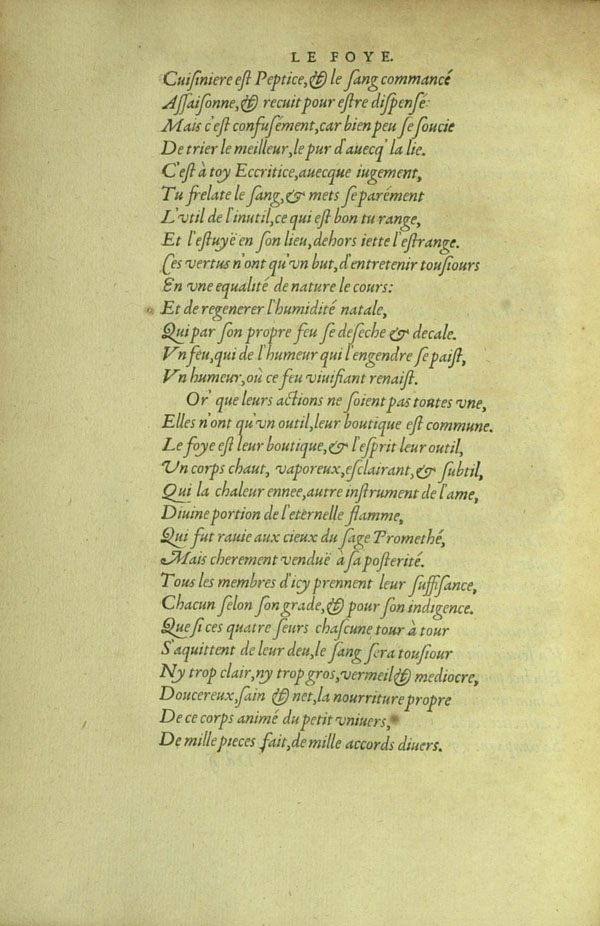 LE FOYE.
Cuisiniere est Peptice, & le sang commancé
Assaisonne, & recuit pour estre dispensé:
Mais c'est confusément, car bien peu se soucie
De trier le meilleur, le pur d'auecq' la lie.
C'est à toy Eccritice, auecque iugement,
Tu frelate le sang, & mets separément
L'vtil de l'inutil, ce qui est bon tu range,
Et l'estuyë en son lieu, dehors iette l'estrange.
Ces vertus n'ont qu'vn but, d'entretenir tousiours
En vne equalité de nature le cours:
Et de regenerer l'humidité natale,
Qui par son propre feu se deseche & decale.
Vn feu, qui de l'humeur qui l'engendre se paist,
Vn humeur, où ce feu viuifiant renaist.
Or' que leurs actions ne soient pas toutes vne,
Elles n'ont qu'vn outil, leur boutique est commune.
Le foye est leur boutique, & l'esprit leur outil,
Vn corps chaut, vaporeux, esclairant, & subtil,
Qui la chaleur ennee, autre instrument de l'ame,
Diuine portion de l'eternelle flamme,
Qui fut rauie aux cieux du sage Promethé,
Mais cherement venduë à sa posterité.
Tous les membres d'icy prennent leur suffisance,
Chacun selon son grade, & pour son indigence.
Que si ces quatre seurs chascune tour à tour
S'aquittent de leur deu, le sang sera tousiour
Ny trop clair, ny trop gros, vermeil & mediocre,
Doucereux, sain & net, la nourriture propre
De ce corps animé du petit vniuers,
De mille pieces fait, de mille accords diuers.